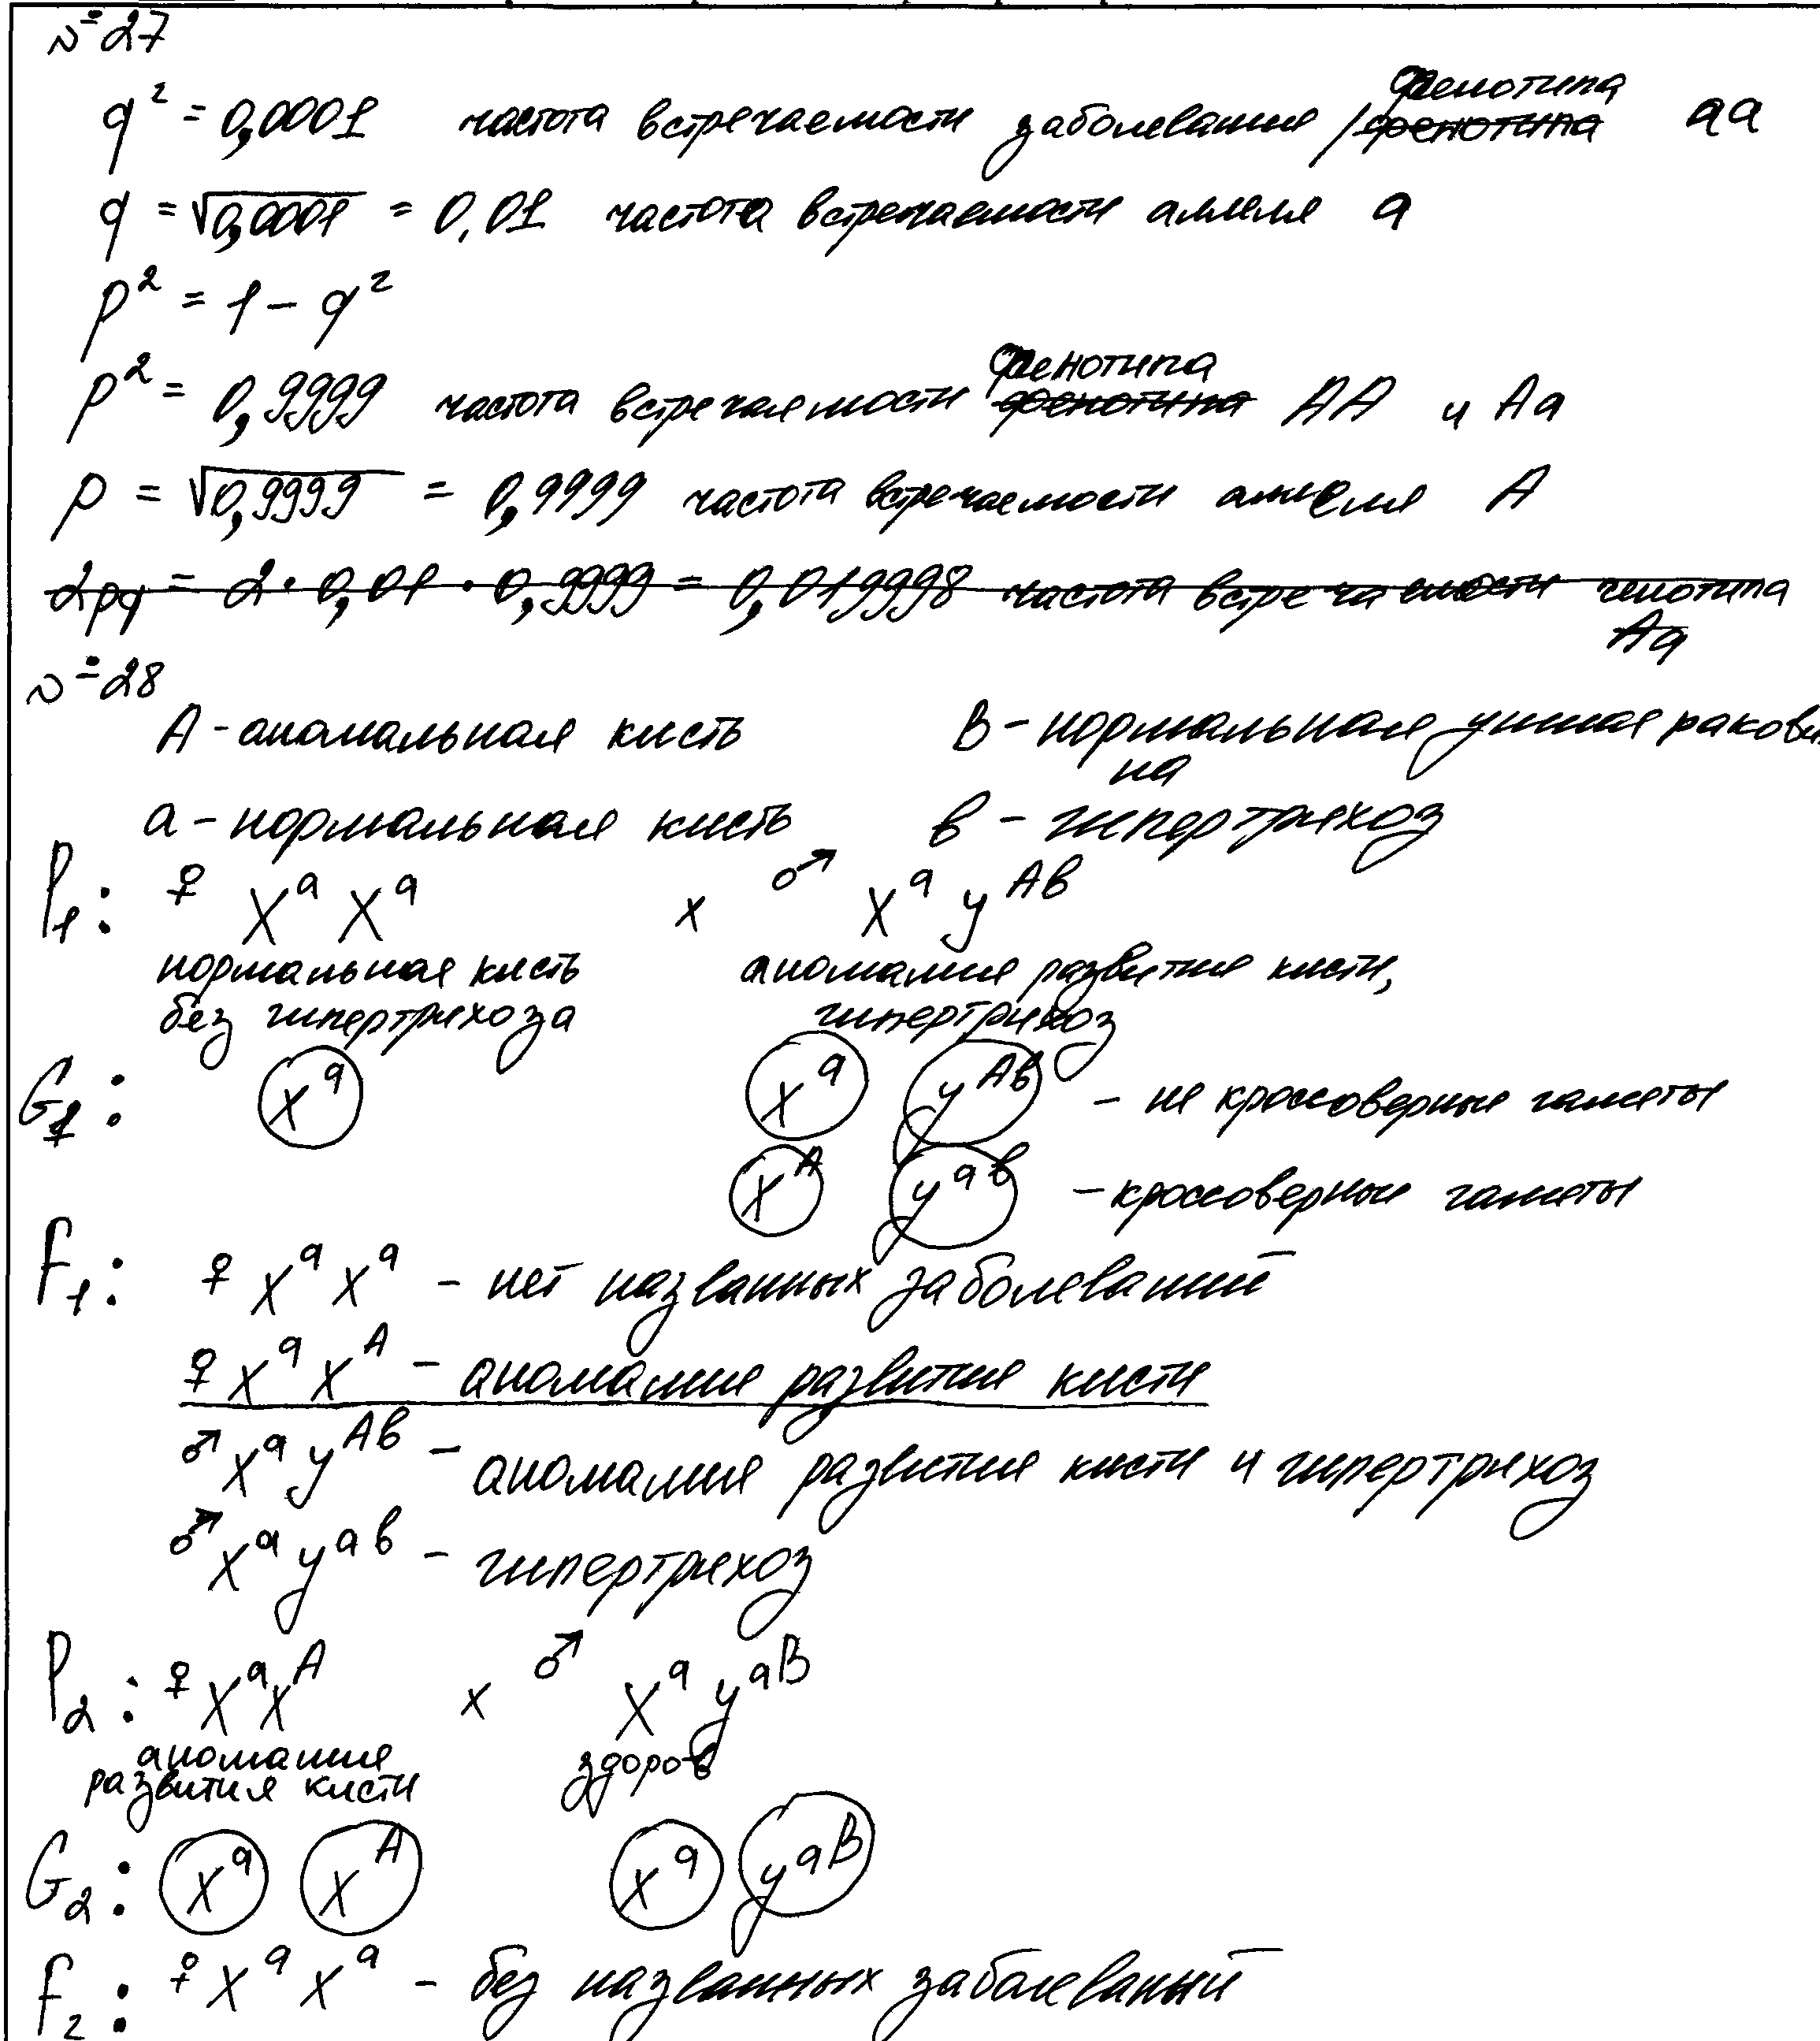 №27
q² = 0,0001 частота встречаемости заболевания / фенотипа фенотипа aa
q = √0,0001 = 0,01 частота встречаемости аллеля a
p² = 1 - q²
p² = 0,9999 частота встречаемости фенотипа фенотипа AA и Aa
p = √0,9999 = 0,9999 частота встречаемости аллеля A
2pq = 2·0,01·0,9999 = 0,019998 частота встречаемости генотипа
Aa
№28
A - аномальная кисть B - нормальная ушная ракови
на
a - нормальная кисть в - гипертрихоз
P₁: ♀ Xᵃ Xᵃ x ♂ Xᵃ yᴬᵇ
нормальная кисть аномалия развития кисти,
без гипертрихоза гипертрихоз
G₁: Xᵃ Xᵃ yᴬᵇ - не кроссоверные гаметы
Xᴬ yᵃᵇ - кроссоверные гаметы
F₁: ♀ Xᵃ Xᵃ - нет названных заболеваний
♀ Xᵃ Xᴬ - аномалия развития кисти
♂ Xᵃ yᴬᵇ - аномалия развития кисти и гипертрихоз
♂ Xᵃ yᵃᵇ - гипертрихоз
P₂: ♀ Xᵃ Xᴬ x ♂ Xᵃ yᵃᴮ
аномалия здоров
развития кисти
G₂: Xᵃ Xᴬ Xᵃ yᵃᴮ
F₂: ♀ Xᵃ Xᵃ - без названных заболеваний